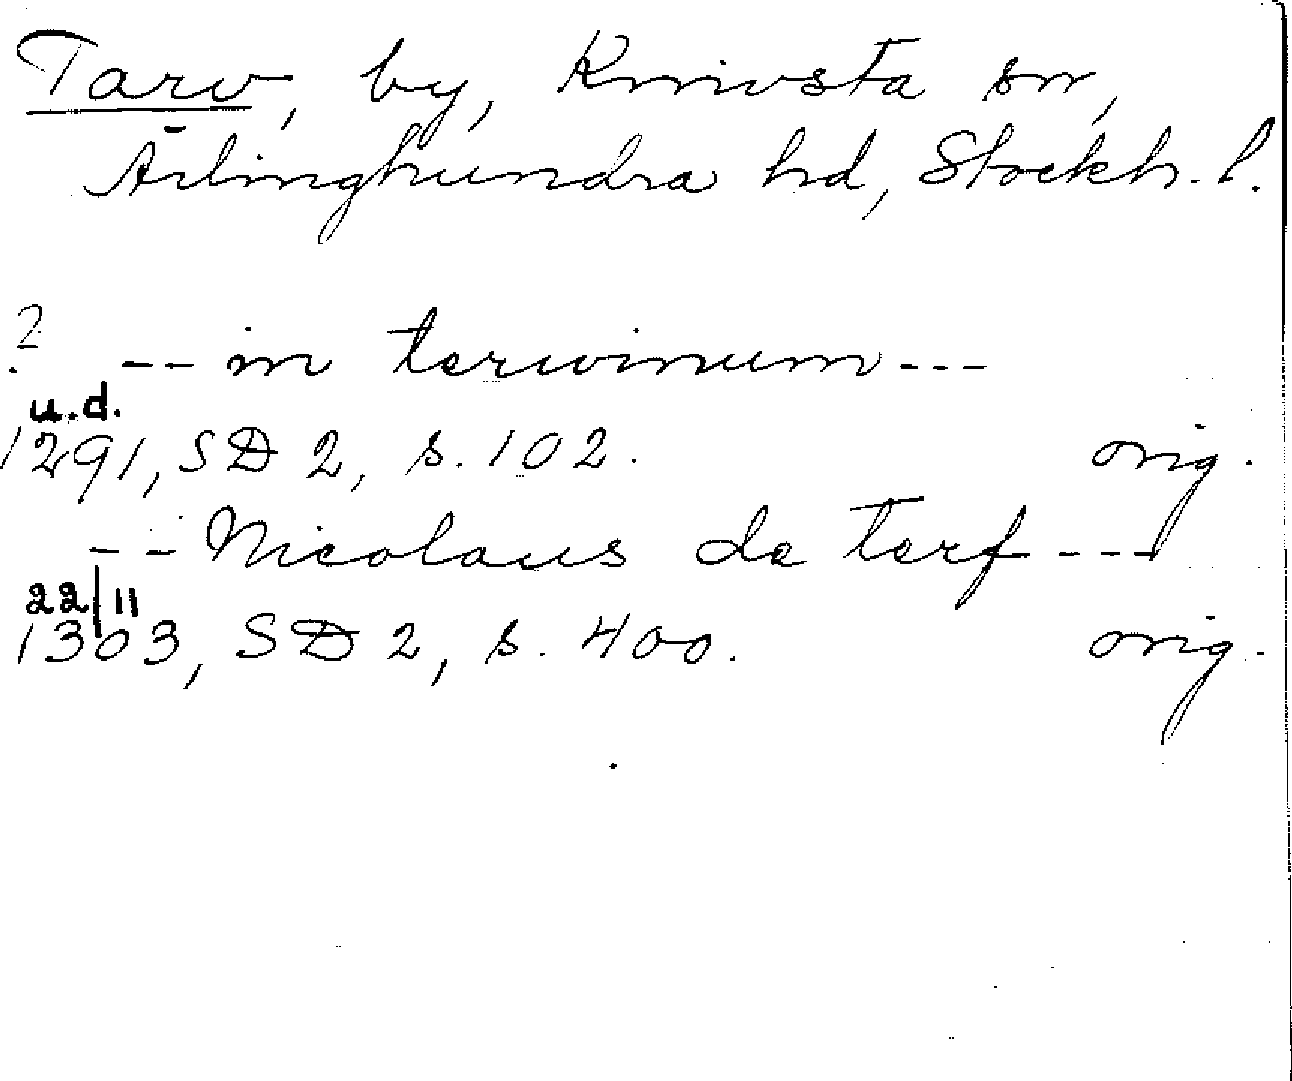 Tarv, by, Knivsta sn,
Ärlinghundra hd, Stockh. l.
? -- in terwinum ---
u.d.
1291, SD 2, s. 102. orig.
-- Nicolaus de terf ---
22/11
1303, SD 2, s. 400. orig.